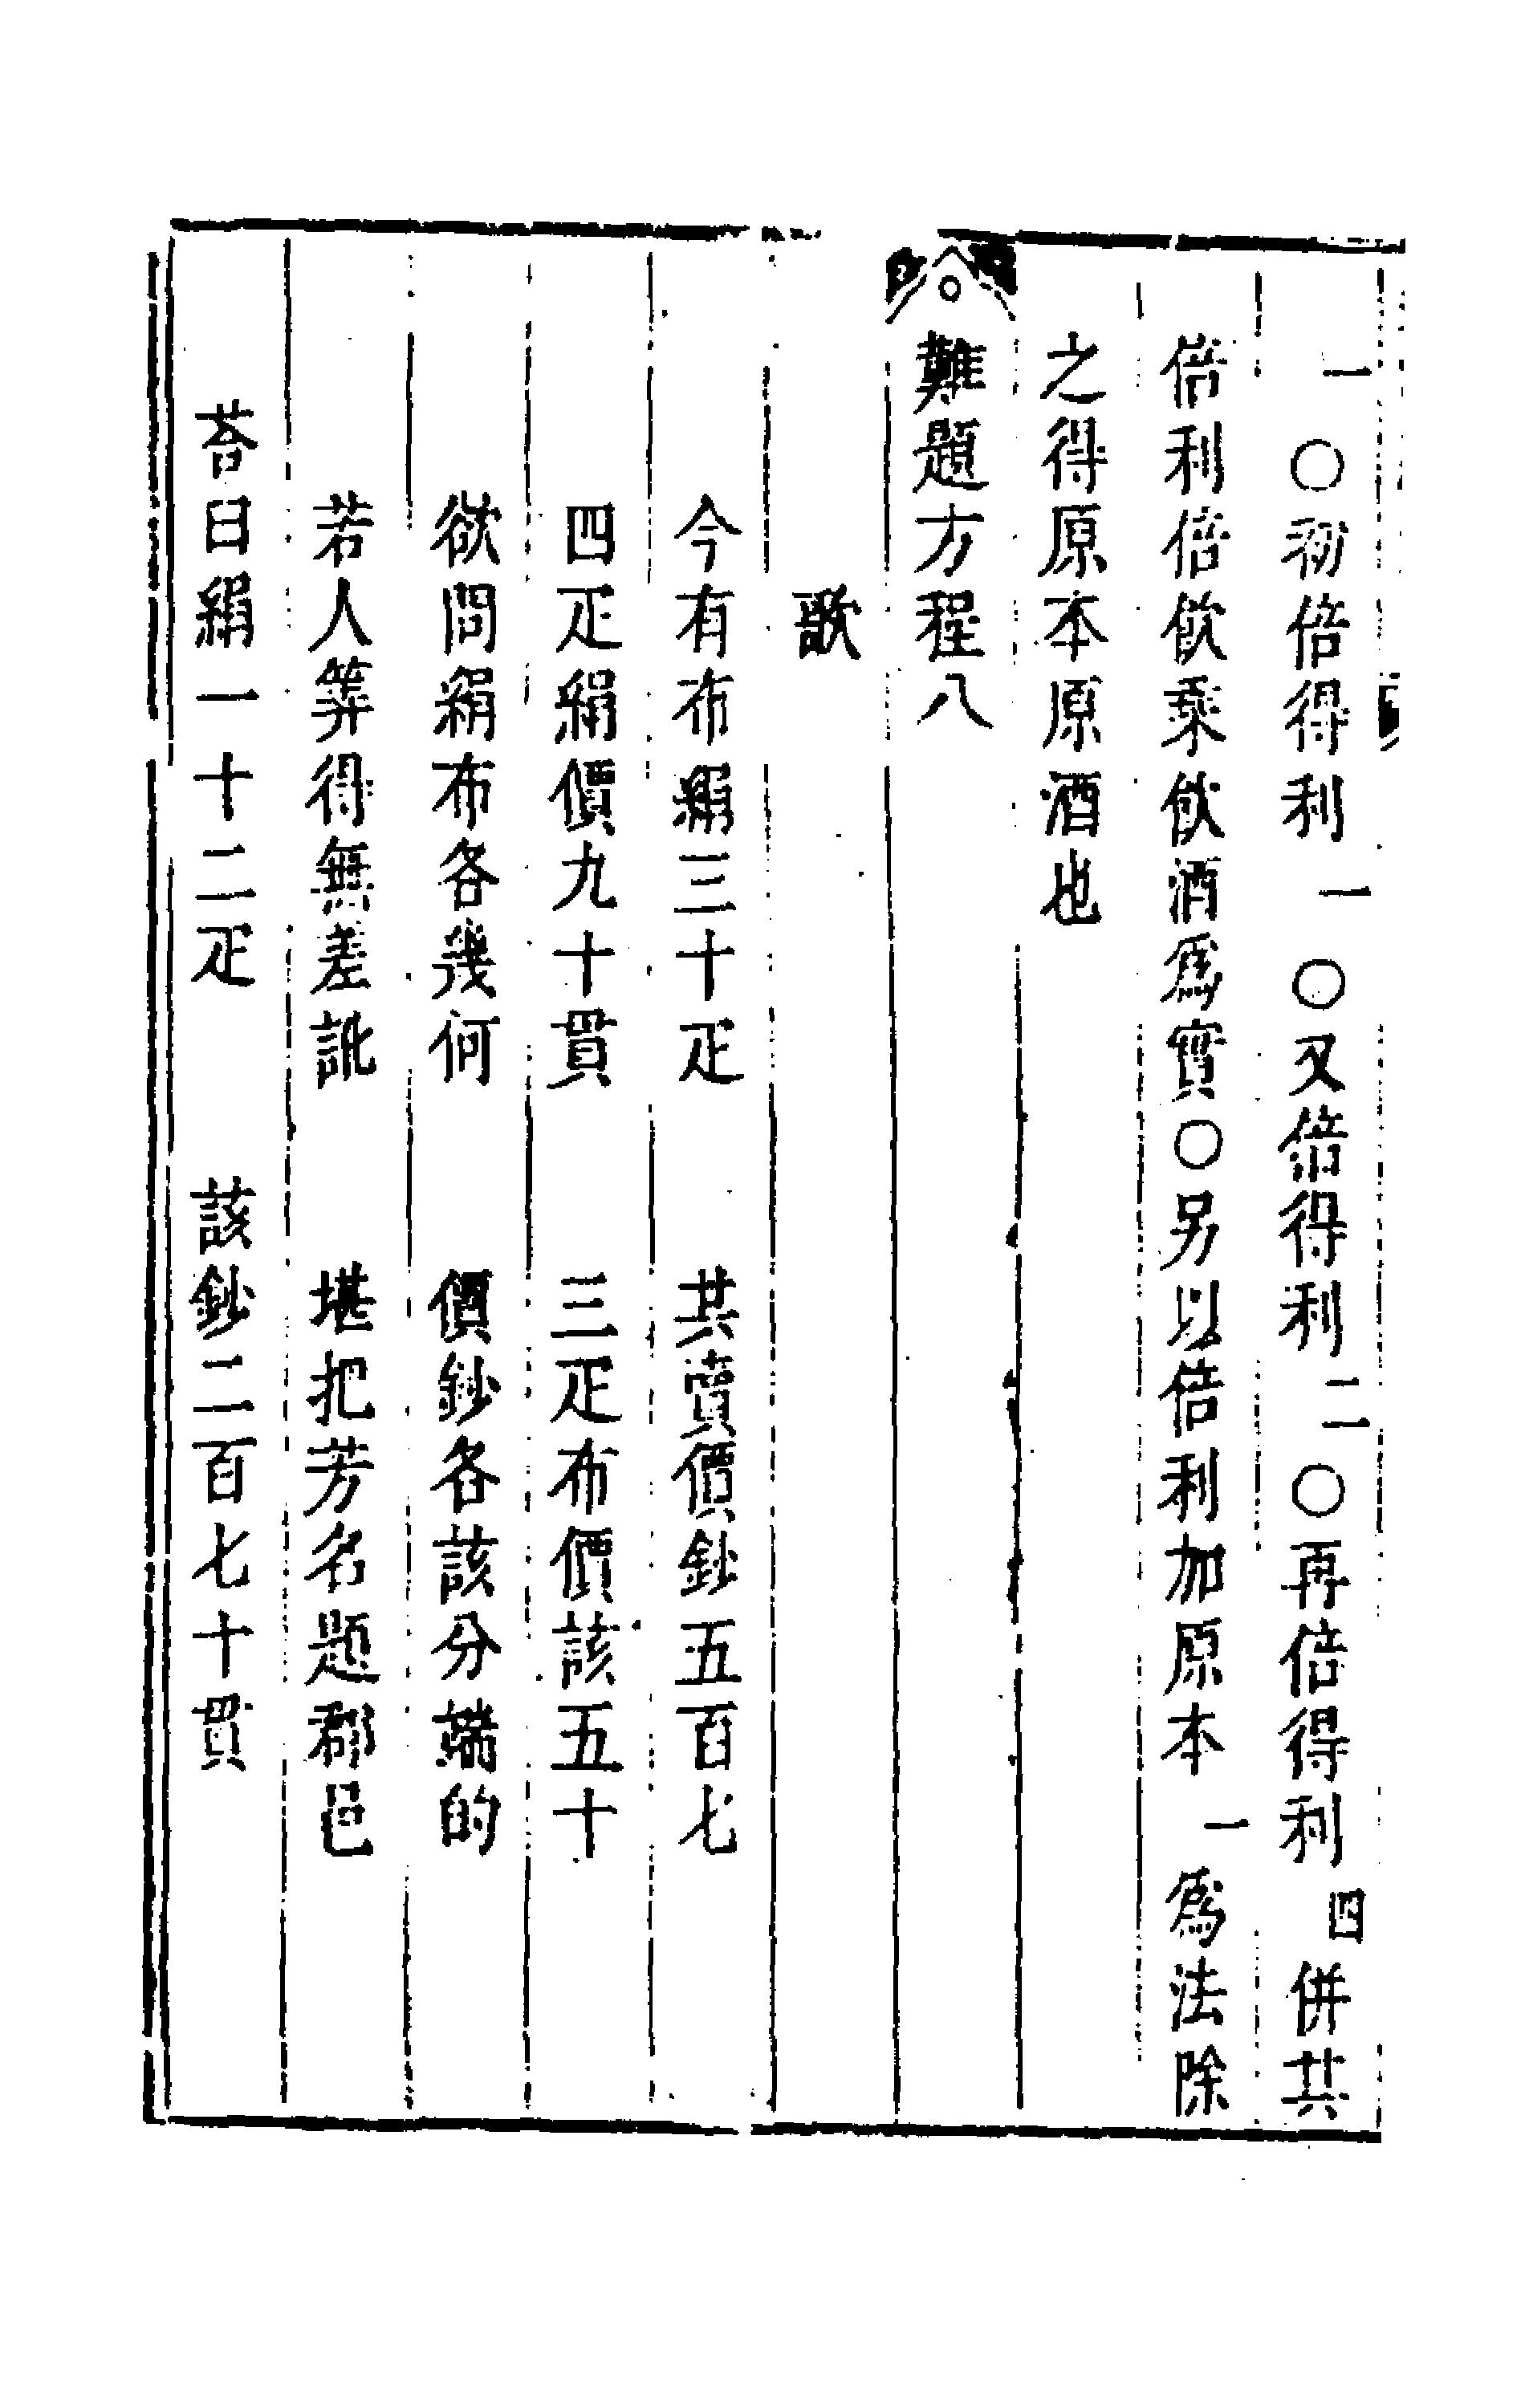 一〇初倍得利一〇又倍得利二〇再倍得利四併共
倍利倍飲乘飲酒爲實〇另以倍利加原本一爲法除
之得原本原酒也
難題方程八
歌
今有布絹三十疋　共賣價鈔五百七
四疋絹價九十貫　三疋布價該五十
欲問絹布各幾何　價鈔各該分端的
若人筭得無差訛　堪把芳名題郡邑
荅曰絹一十二疋　該鈔二百七十貫